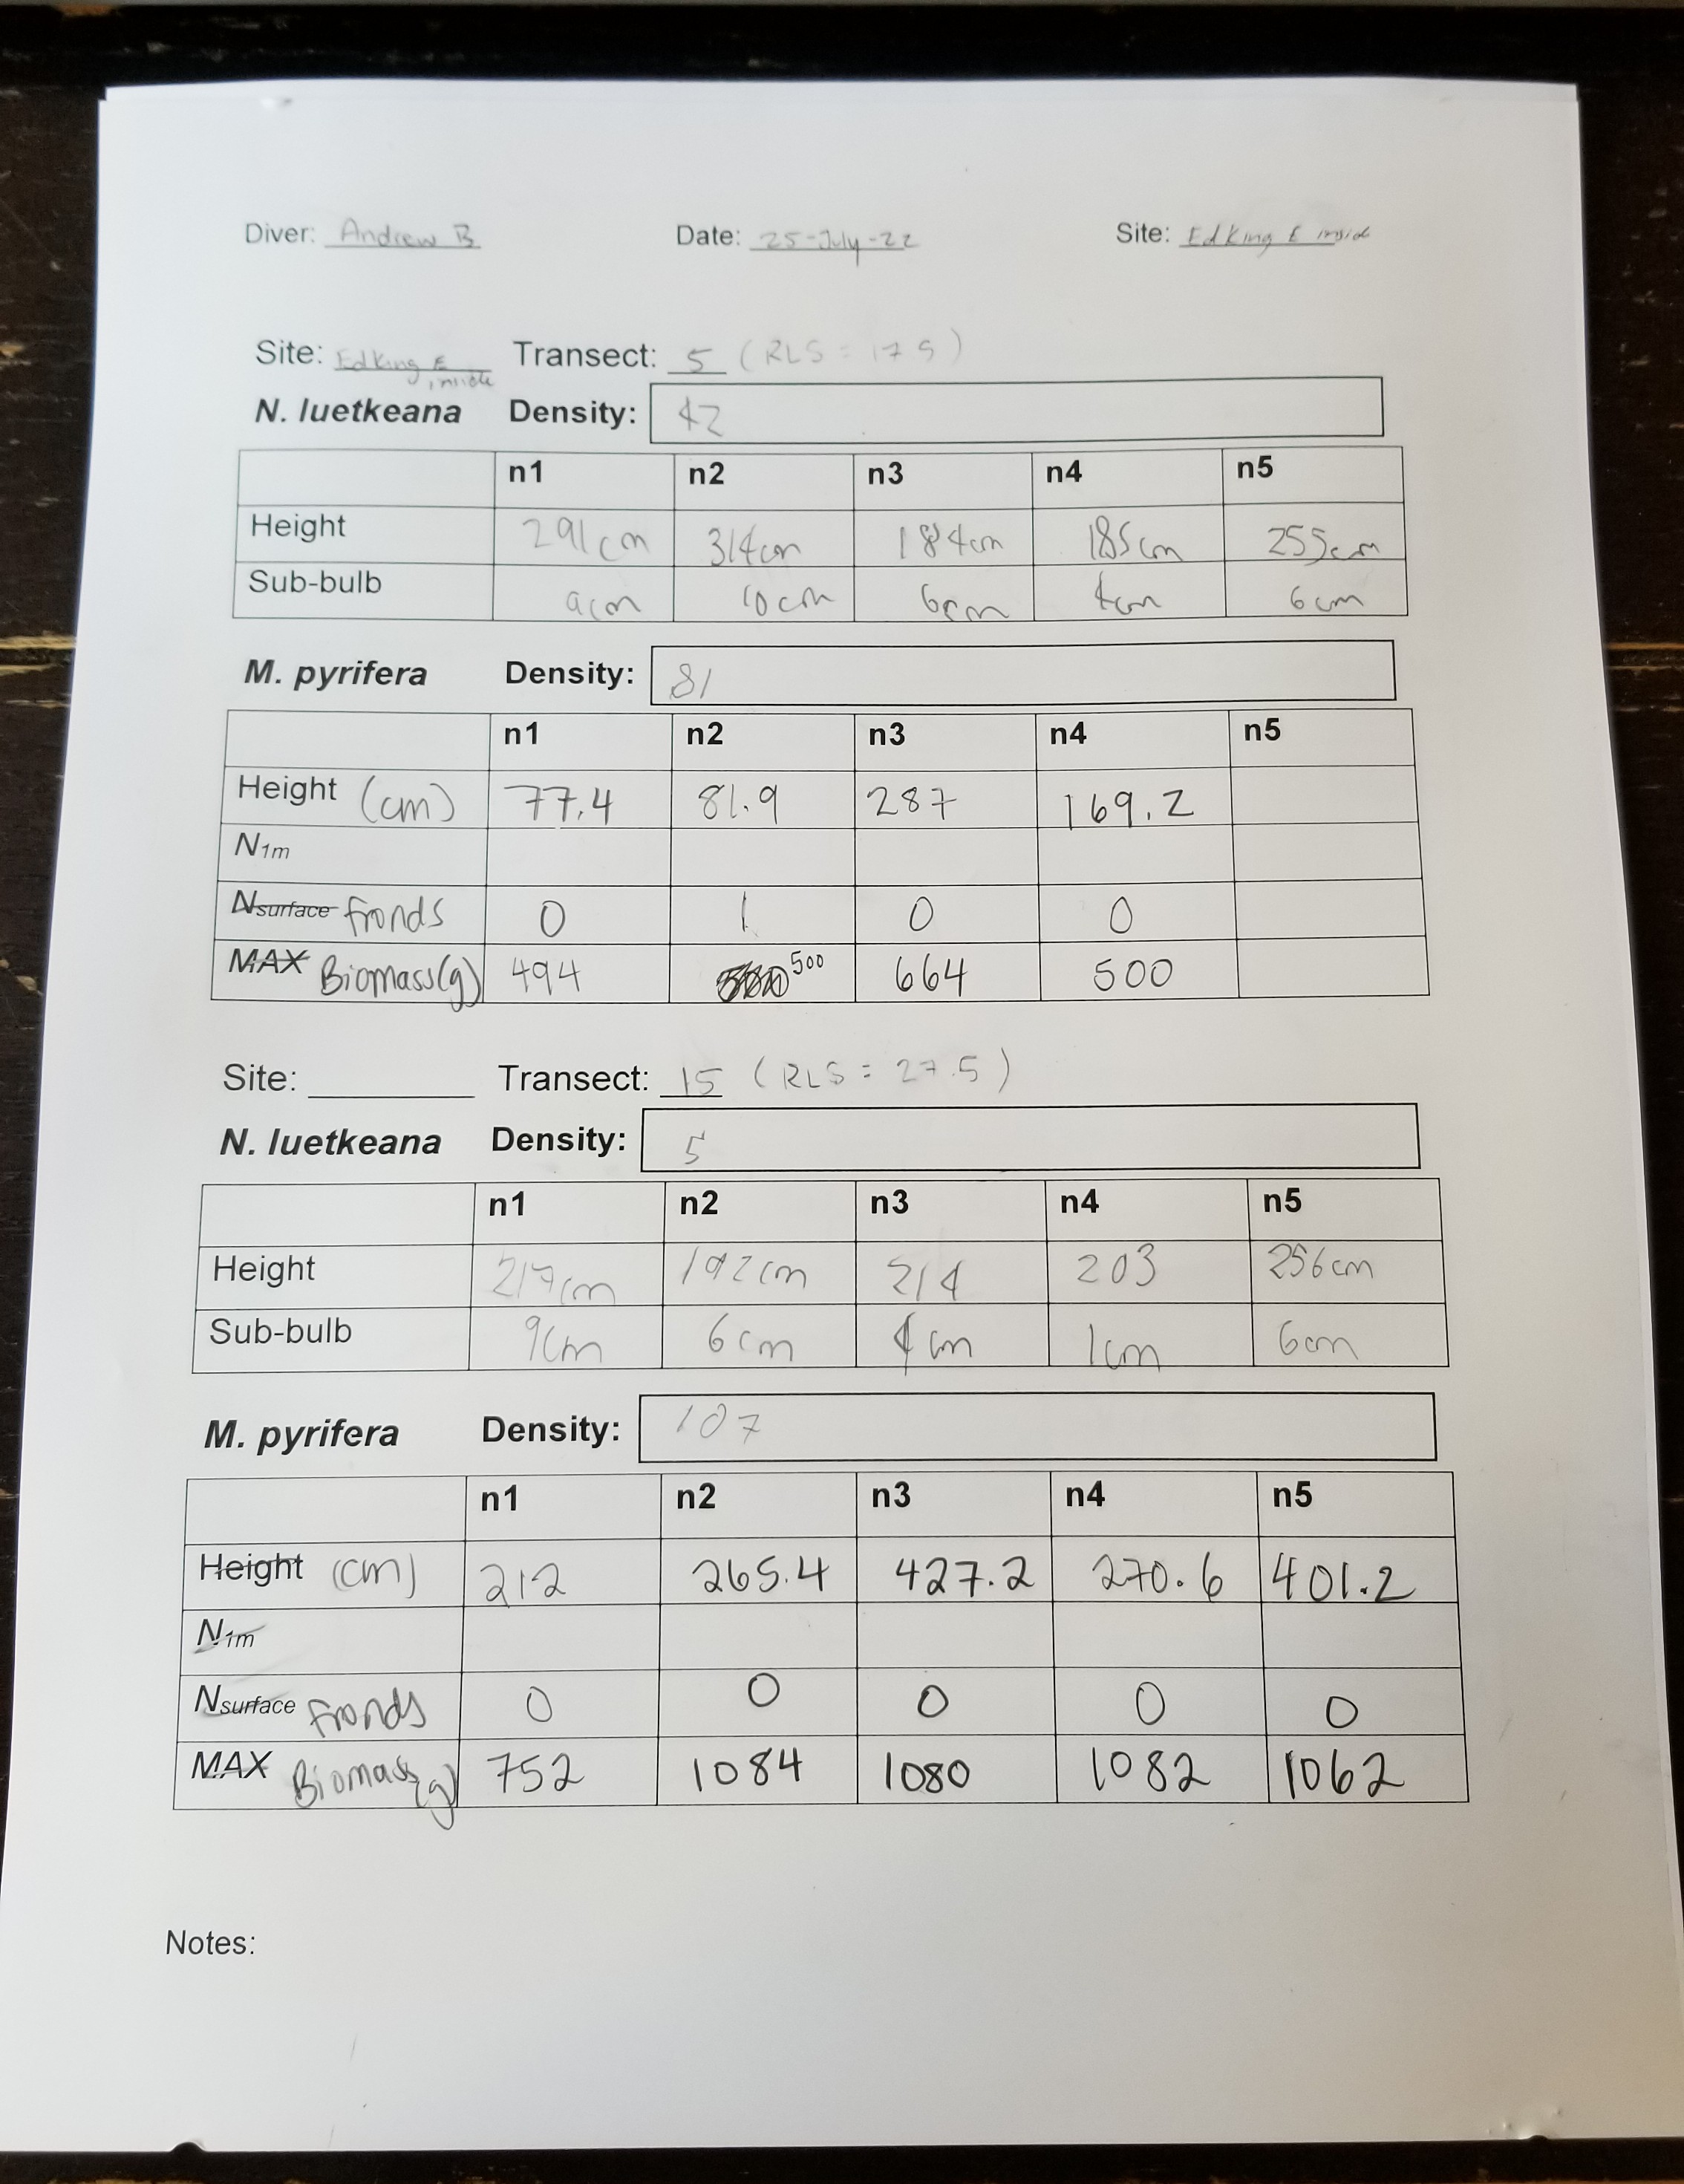 Diver: Andrew B Date: 25-July-22 Site: Ed King E inside
Site: Ed King E inside Transect: 5 (RLS = 17.5)
N. luetkeana Density: 42
n1 n2 n3 n4 n5
Height 291cm 314cm 184cm 185cm 255cm
Sub-bulb 9cm 10cm 6cm 4cm 6cm
M. pyrifera Density: 81
n1 n2 n3 n4 n5
Height (cm) 77.4 81.9 287 169.2
N1m
Nsurface fronds 0 1 0 0
MAX Biomass(g) 494 500 664 500
Site: Transect: 15 (RLS = 27.5)
N. luetkeana Density: 5
n1 n2 n3 n4 n5
Height 217cm 192cm 214 203 256cm
Sub-bulb 9cm 6cm 4cm 1cm 6cm
M. pyrifera Density: 107
n1 n2 n3 n4 n5
Height (cm) 212 265.4 427.2 270.6 401.2
N1m
Nsurface fronds 0 0 0 0 0
MAX Biomass(g) 752 1084 1080 1082 1062
Notes: